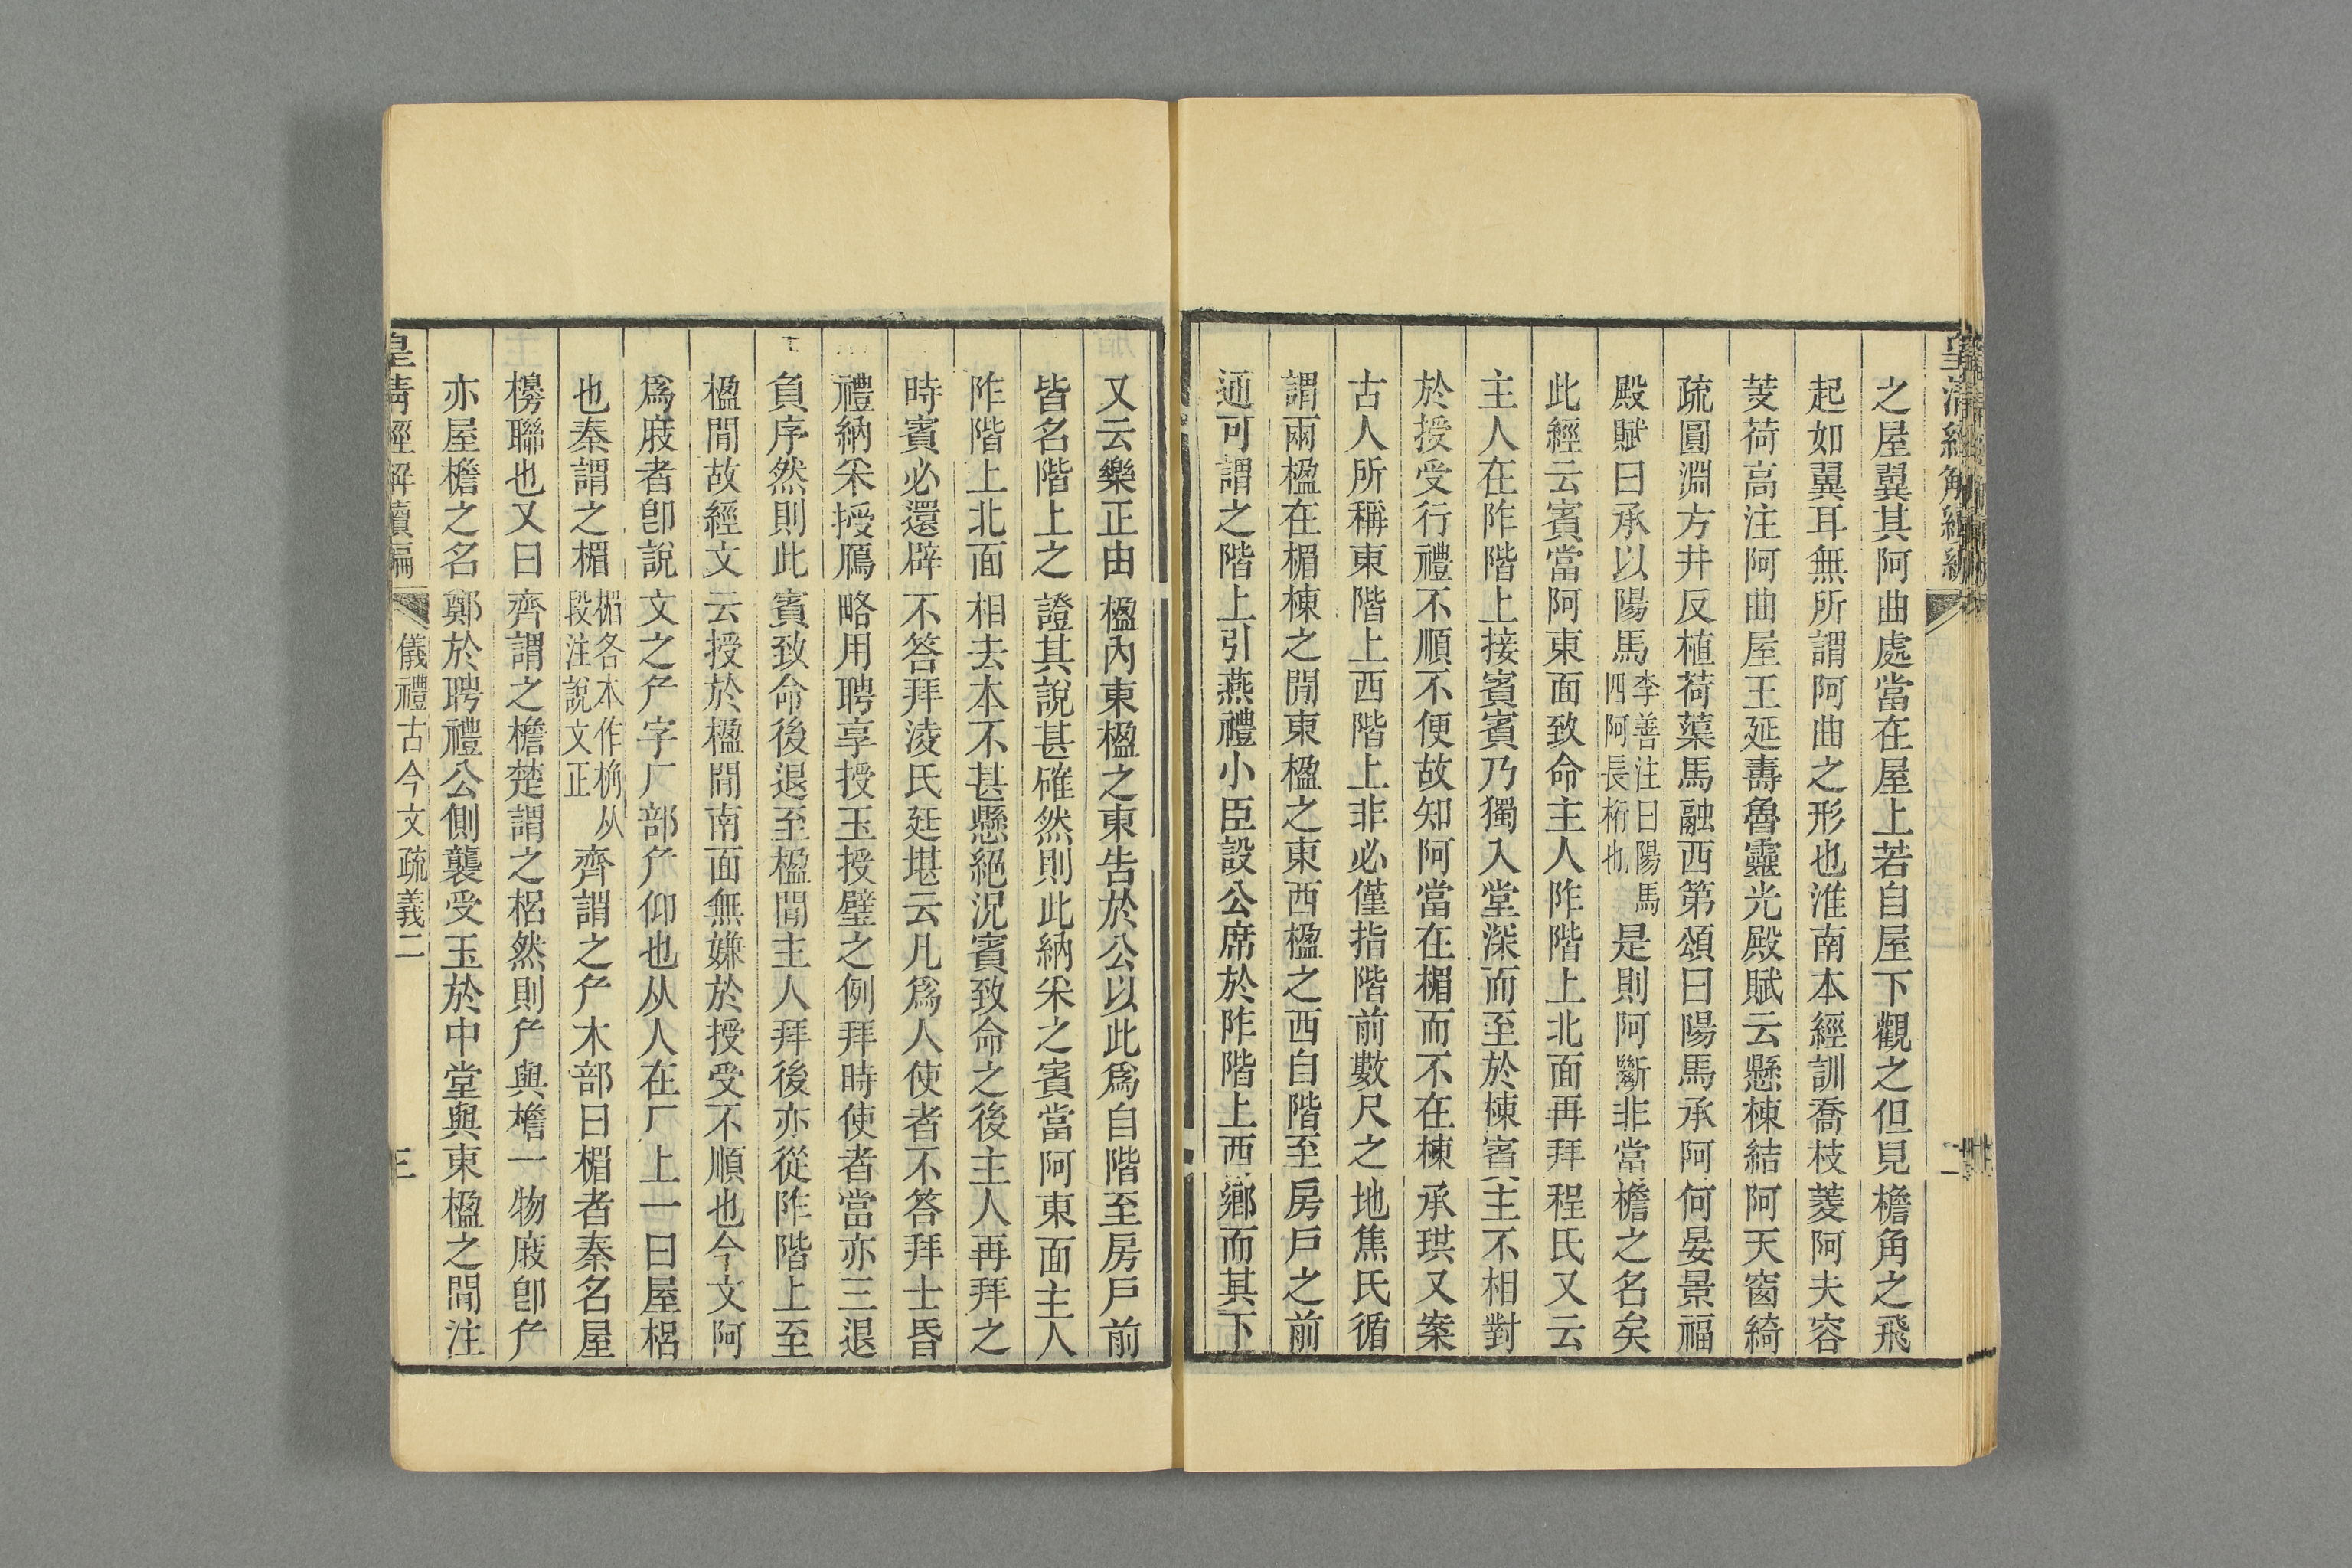 之屋翼其阿曲處當在屋上若自屋下觀之但見檐角之飛
起如翼耳無所謂阿曲之形也淮南本經訓喬枝菱阿夫容
芰荷高注阿曲屋王延壽魯靈光殿賦云懸棟結阿天窗綺
疏圓淵方井反植荷蕖馬融西第頌曰陽馬承阿何晏景福
殿賦曰承以陽馬李善注曰陽馬四阿長桁也是則阿斷非當檐之名矣
此經云賓當阿東面致命主人阼階上北面再拜程氏又云
主人在阼階上接賓賓乃獨入堂深而至於棟賓主不相對
於授受行禮不順不便故知阿當在楣而不在棟承珙又案
古人所稱東階上西階上非必僅指階前數尺之地焦氏循
謂兩楹在楣棟之閒東楹之東西楹之西自階至房戶之前
通可謂之階上引燕禮小臣設公席於阼階上西鄉而其下
又云樂正由楹內東楹之東告於公以此爲自階至房戶前
皆名階上之證其說甚確然則此納采之賓當阿東面主人
阼階上北面相去本不甚懸絕況賓致命之後主人再拜之
時賓必還辟不答拜淩氏廷堪云凡爲人使者不答拜士昏
禮納采授鴈略用聘享授玉授璧之例拜時使者當亦三退
負序然則此賓致命後退至楹閒主人拜後亦從阼階上至
楹閒故經文云授於楹閒南面無嫌於授受不順也今文阿
爲庪者卽說文之厃字厂部厃仰也从人在厂上一曰屋梠
也秦謂之楣楣各本作桷从段注說文正齊謂之厃木部曰楣者秦名屋
櫋聯也又曰齊謂之檐楚謂之梠然則厃與檐一物庪卽厃
亦屋檐之名鄭於聘禮公側襲受玉於中堂與東楹之閒注
皇淸經解續編
儀禮古今文疏義二
三